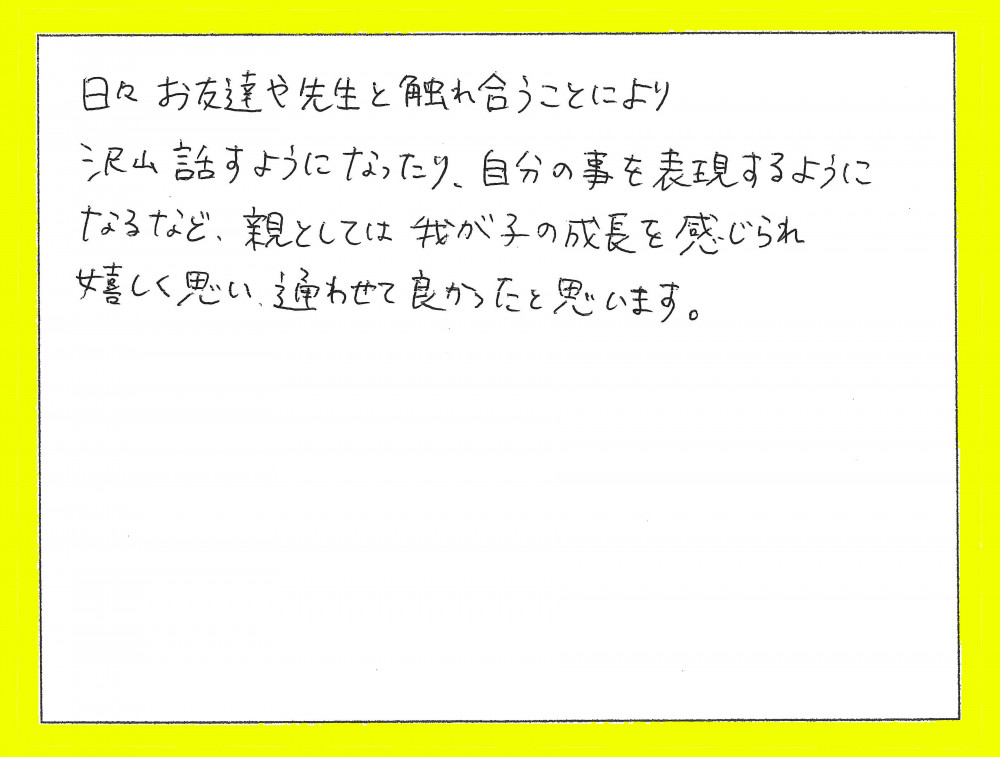 日々お友達や先生と触れ合うことにより
沢山話すようになったり、自分の事を表現するように
なるなど、親としては我が子の成長を感じられ
嬉しく思い、通わせて良かったと思います。